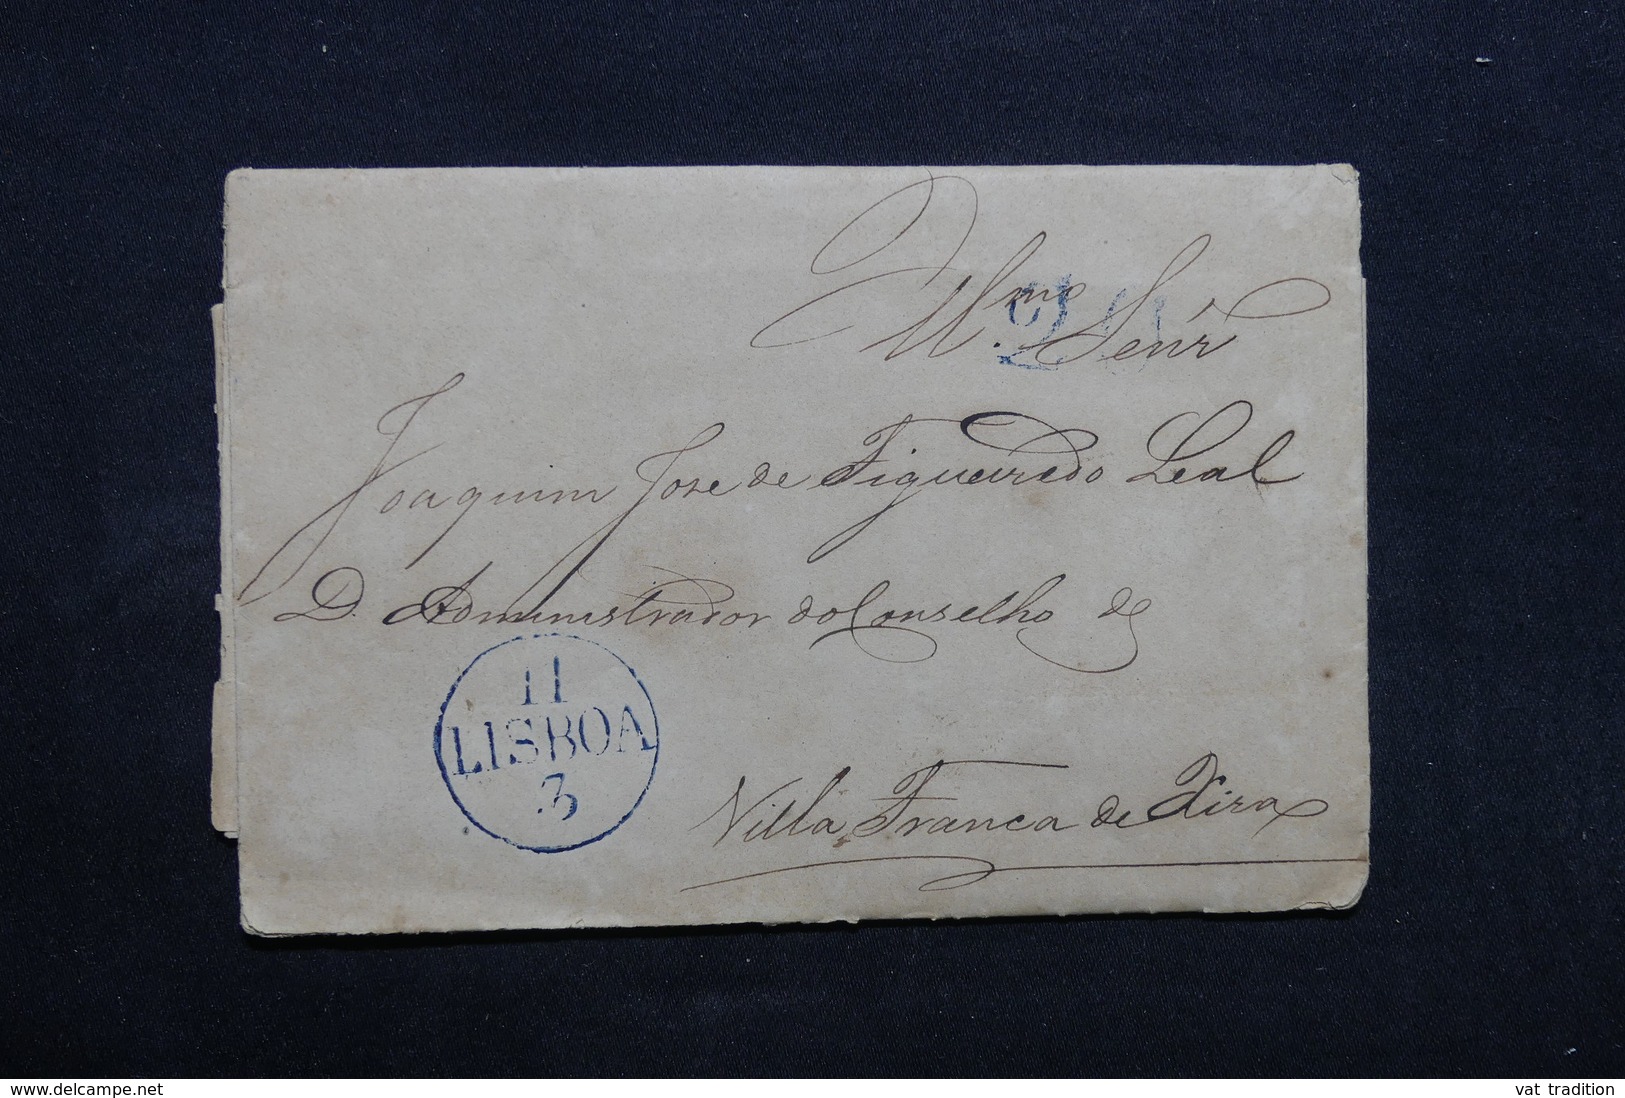 Ill.mo Senr
20
Joaquim Jose de Figueiredo Leal
D. Administrador do Conselho de
11
LISBOA
3
Villa Franca de Xira
delcampe.net
vat tradition